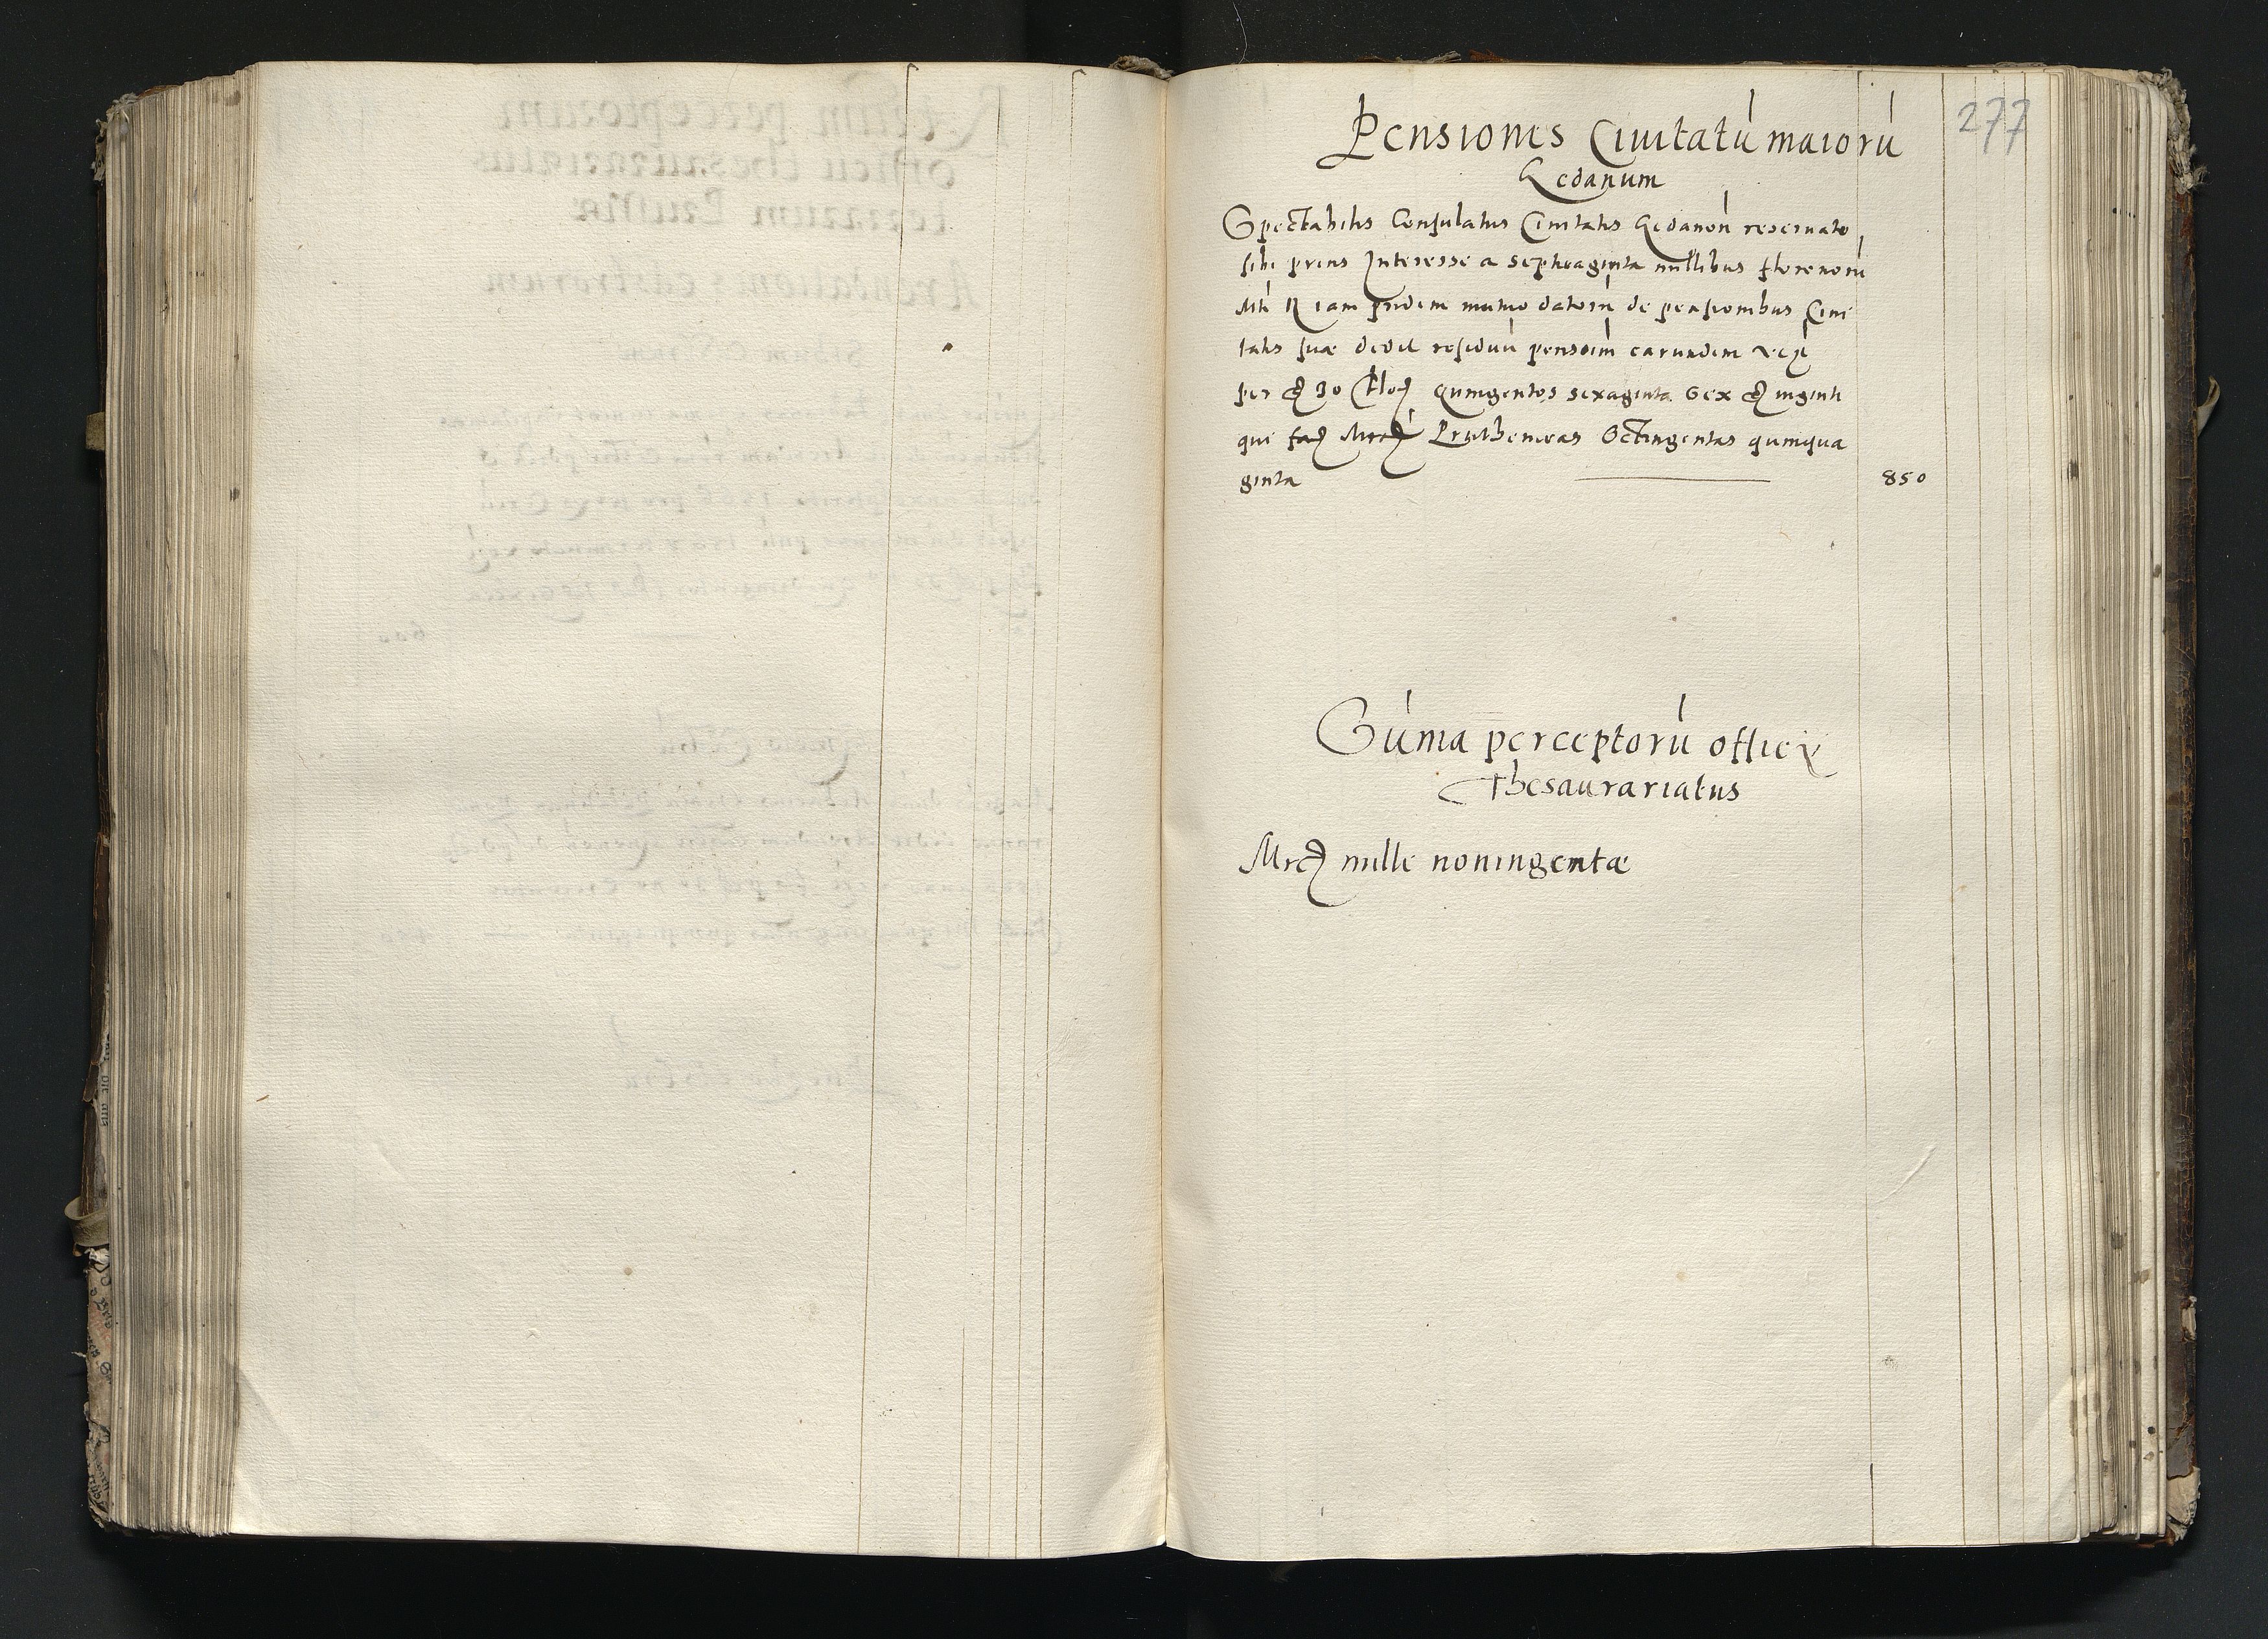 277
Pensiones Ciuitatū maiorū
Gedanum
Spectabilis Consulatus Ciuitatis Gedanen̄ reseruato
sibi prius Interesse a septuaginta millibus florenorū
Mti R iam pridem mutuo datorū de pensionibus Ciui
tatis suæ dedit residuū pensoim earundem
per 30 quingentos sexaginta sex viginti
qui Pruthenicas Octingentas quinqua
ginta 850
Sūma perceptorū officij
Thesaurariatus
Mrc mille noningentæ